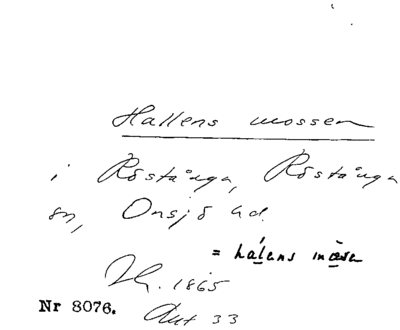 Hallens mossen
i Röstånga, Röstånga
sn, Onsjö hd.
= hálens
1865
Nr 8076.
33